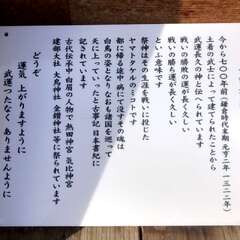 今から七〇〇年前(鎌倉時代末期 元亨二年 一三二二年)
土着の武士によって建てられたことから
武運長久の神と伝へられています
戦いの勝敗の運が長く久しい
戦いの勝ち運が長く久しい
という意味です
祭神はその生涯を戦いに投じた
ヤマトタケルのミコトです
都に帰る途中 病にて没すその魂は
白鳥の姿となりなおも諸国を巡って
天に上っていったと古事記 日本書紀に
古代伝承中 白眉の人物で 熱田神宮 気比神宮
建部大社 大鳥神社 金鑚神社等に祭られています
どうぞ
運気 上がりますように
武運つたなく ありませんように